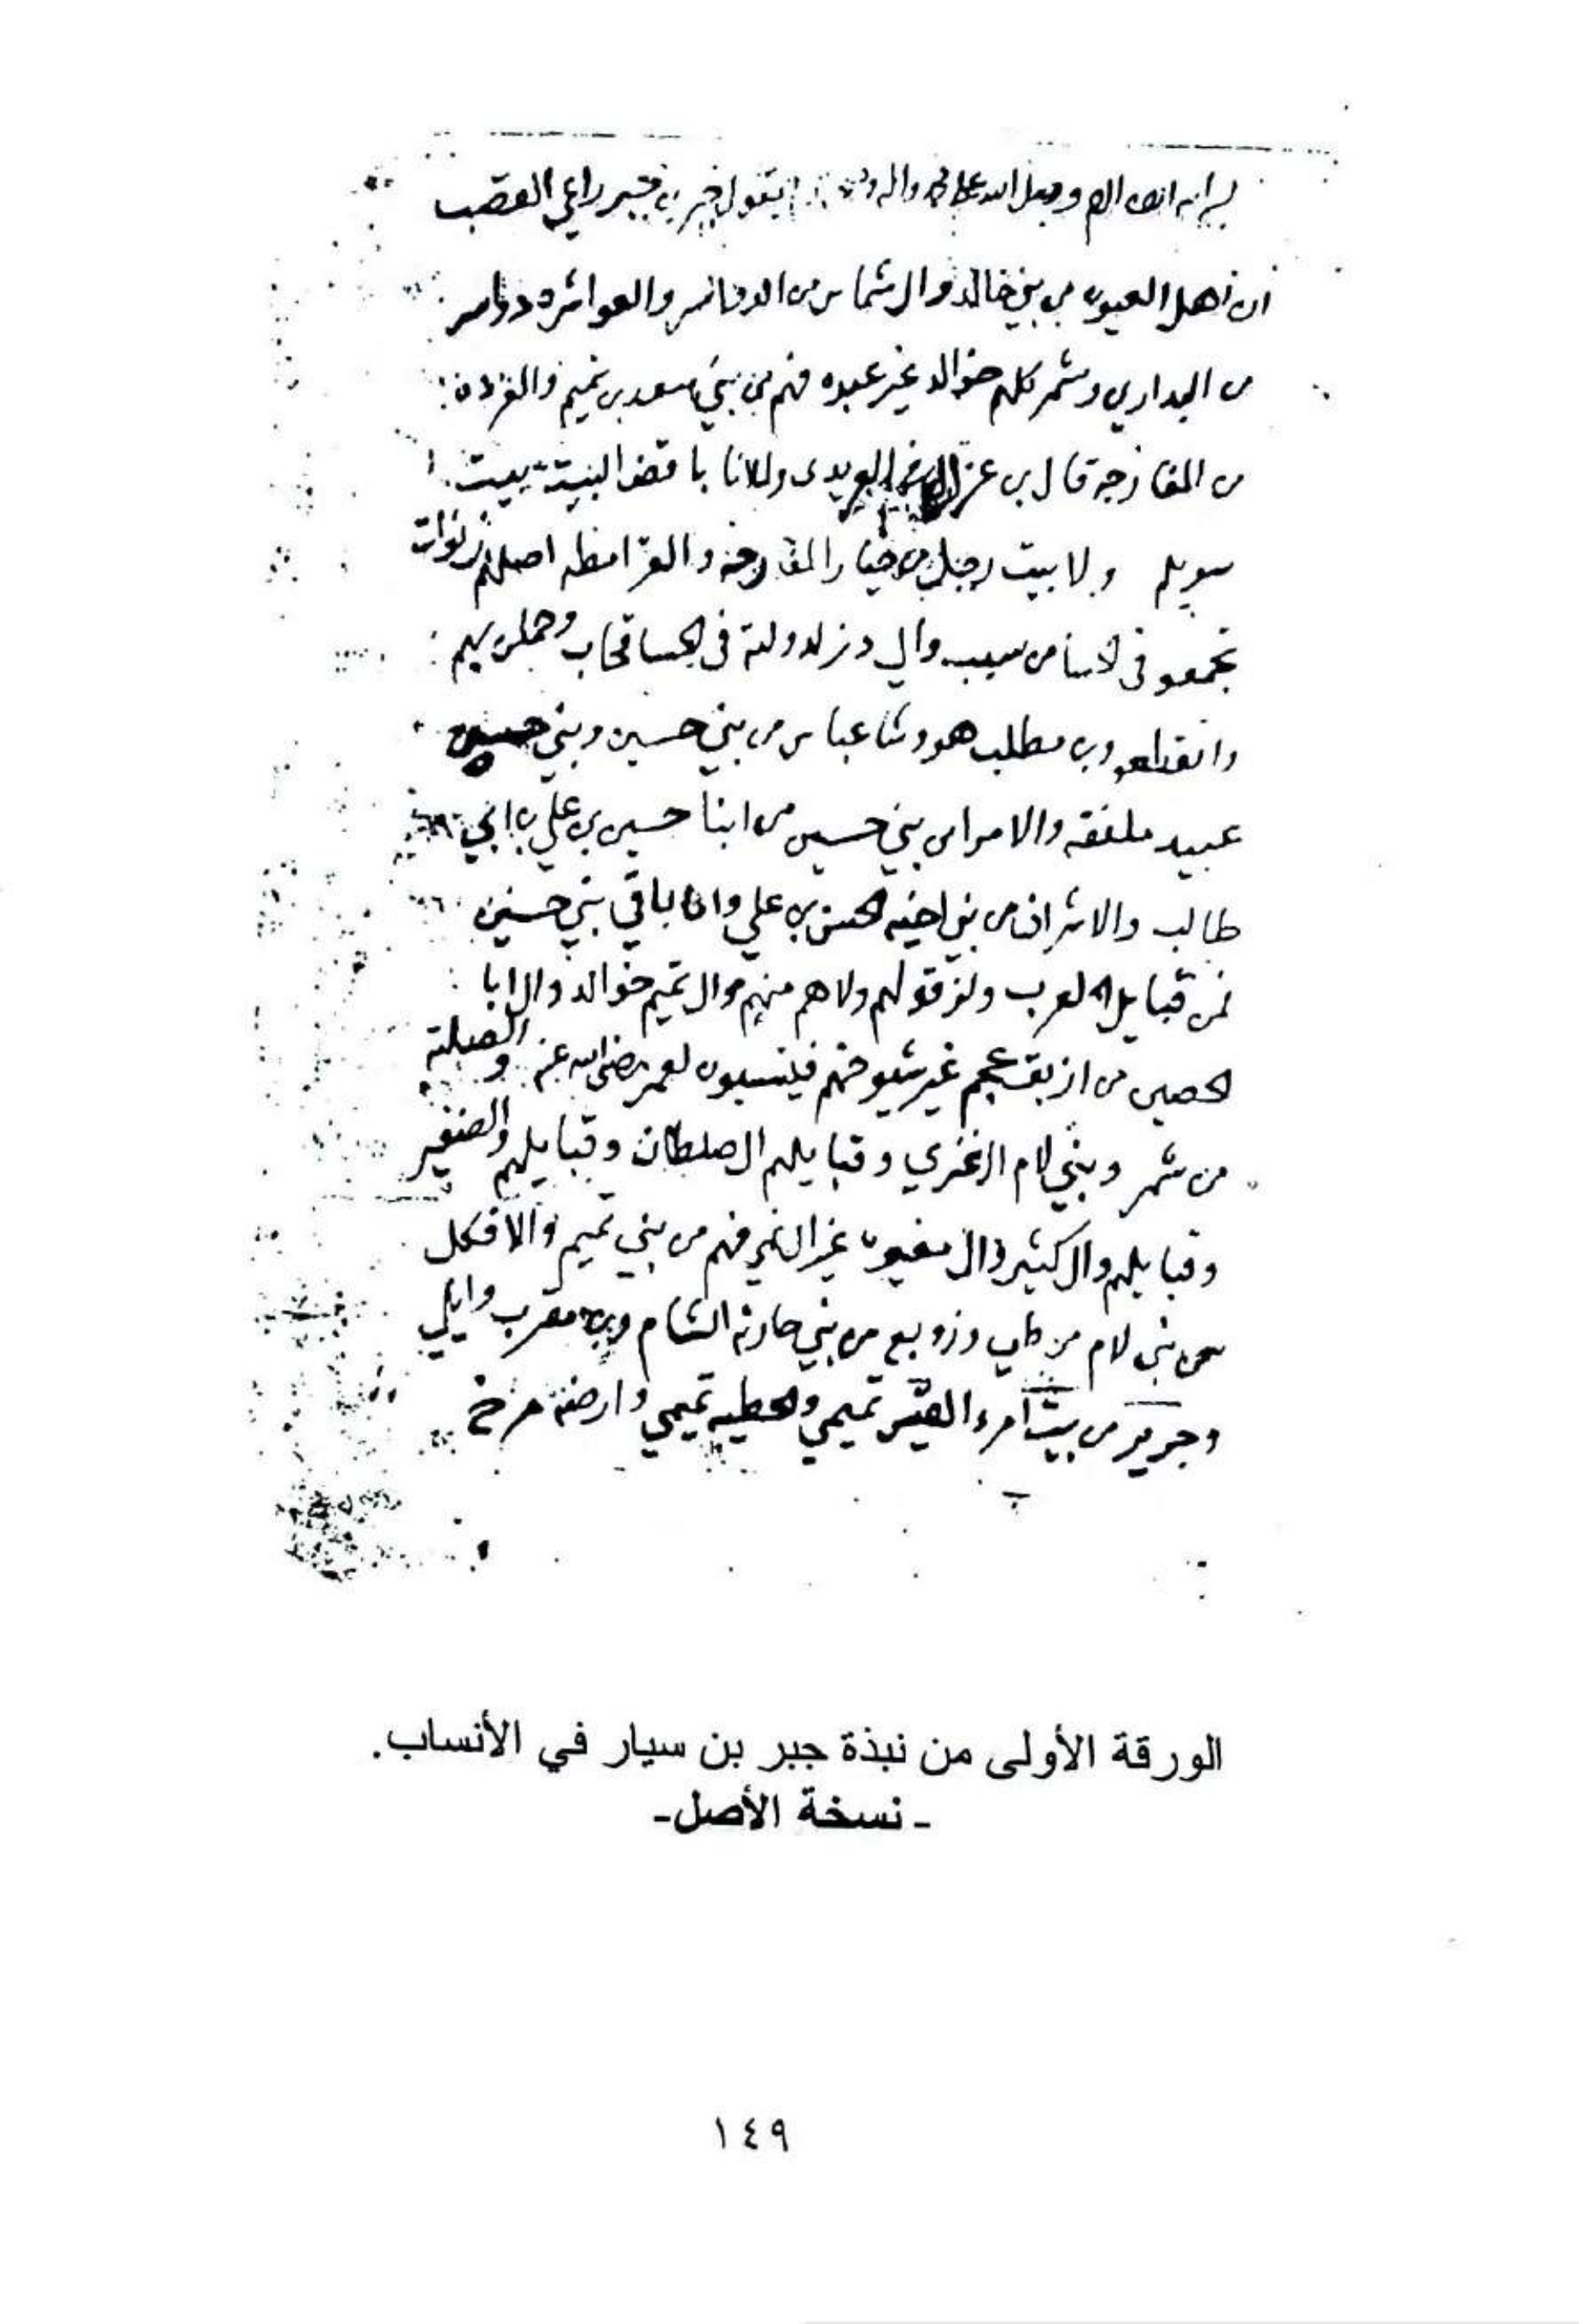 يقول جبر بن جبر راعي القصب
ان اهل العيون من بني خالد وال شماس من الدواسر والعواشره دواسر
من البداري وشمر كلهم خوالد غير عبده فهم من بني سعد بن تميم والفرده
من المفارجه قال بن غزال البريدى ولانا با قصر البيت بيت
سويلم ولا بيت رجل من خيار المفارجه والقرامطه اصلهم
تجمعو في من سبب وال دزله دولة في الحسا
وانقطعو وبن مطلب هو وشا عباس من بني حسين وبني حسين
عبيد ملفقه والامرا من بني حسين من ابنا حسين بن علي بن ابي
طالب والاشراف من بني اخيه الحسن بن علي واما باقي بني حسين
فمن قبايل العرب ولزقو لهم ولا هم منهم وال تميم خوالد وال ابا
الحصين من عجم غير شيوخهم فينسبون لعمر رضي الله عنه والصبلته
من شمر وبني لام الغزي وقبايلهم ال صلطان وقبايلهم والضفير
وقبايلهم وال كثير وال مغيره غير النمير فهم من بني تميم والافكل
من بني لام من طي وزوبع من بني حارثة الشام وبن مقرب وايلي
وجرير من بيت امرء القيس تميمي والحطيه تميمي وارضه مرخ
الورقة الأولى من نبذة جبر بن سيار في الأنساب.
ـ نسخة الأصل ـ
١٤٩